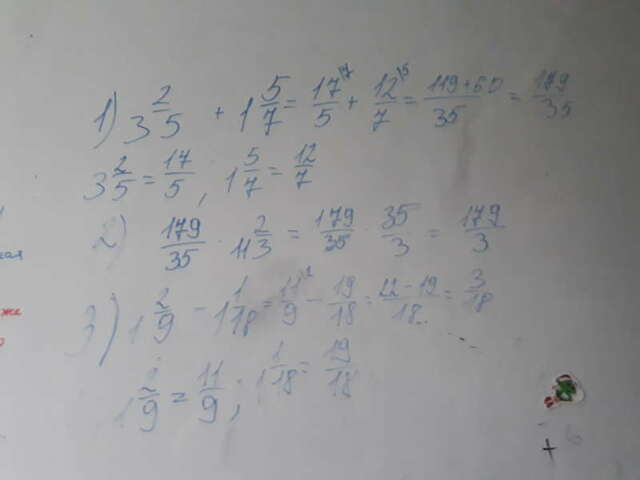 1) 3 2/5 + 1 5/7 = 17/5 + 12/7 = 119+60/35 = 179/35
3 2/5 = 17/5 ; 1 5/7 = 12/7
2) 179/35 · 11 2/3 = 179/35 · 35/3 = 179/3
3) 1 2/9 - 1 1/18 = 11/9 - 19/18 = 22-19/18 = 3/18
1 2/9 = 11/9 ; 1 1/18 = 19/18
+